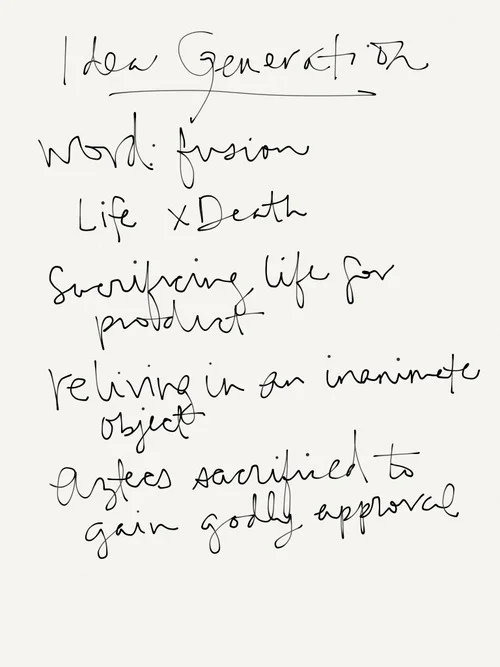 Idea Generation
word: fusion
Life x Death
Sacrificing life for
product
reliving in an inanimate
object
Aztecs sacrificed to
gain godly approval